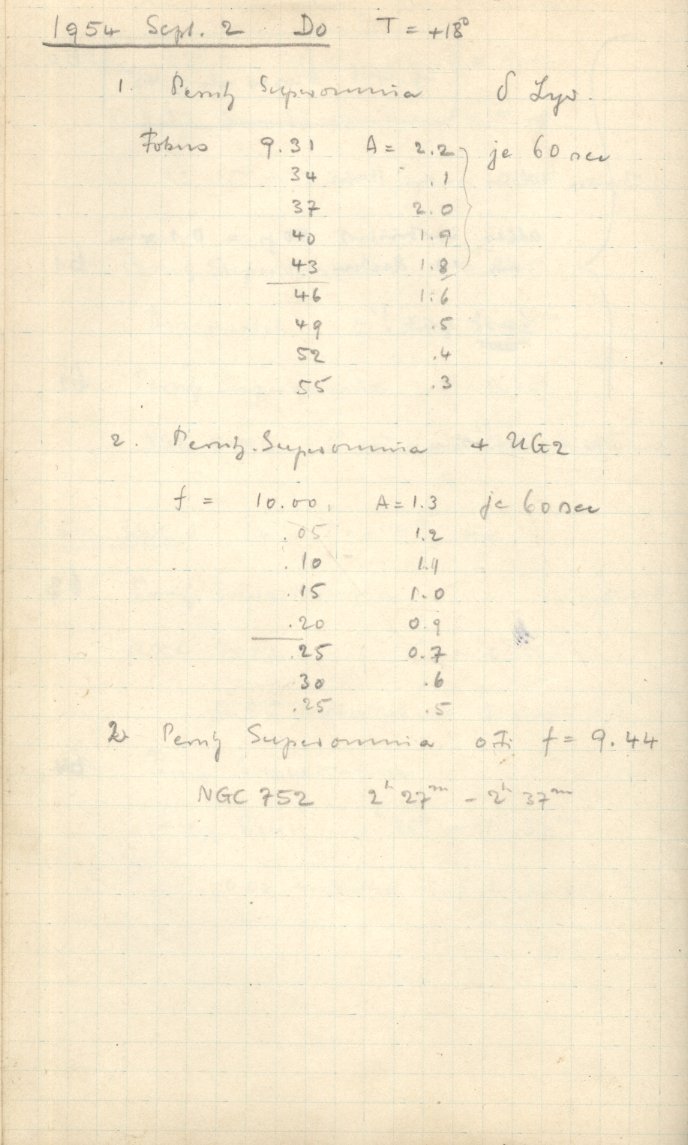 1954 Sept. 2 Do T = +18°
1 Perutz Superomnia δ Lyr.
Fokus 9.31 A = 2.2 je 60 sec
34 .1
37 2.0
40 1.9
43 1.8
46 1.6
49 .5
52 .4
55 .3
2. Perutz Superomnia + UG2
f = 10.00 A = 1.3 je 60 sec
.05 1.2
.10 1.1
.15 1.0
.20 0.9
.25 0.7
30 .6
.25 .5
Perutz Superomnia o. Fi f = 9.44
NGC 752 2h 27m – 2h 37m